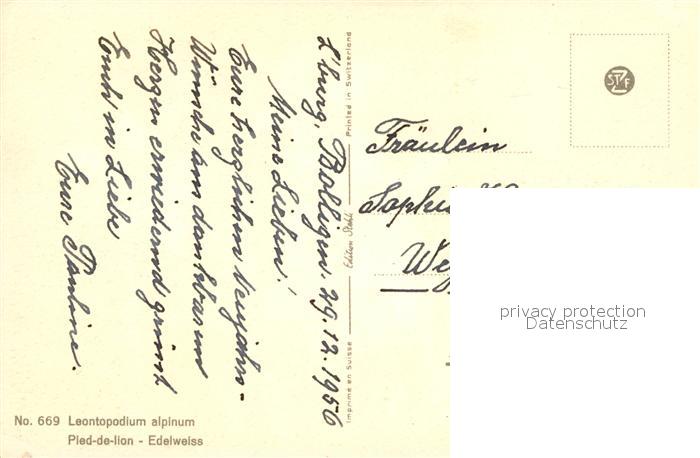 L'burg, Bolligen. 29.12.1956
Meine Lieben!
Eure herzlichen Neujahrs-
Wünsche von dankbarem
Herzen erwiedernd grüsst
Euch in Liebe
Eure Pauline.
Printed in Switzerland
Edition Stehli
Imprimé en Suisse
STZF
Fräulein
Sophie
We
privacy protection
Datenschutz
No. 669 Leontopodium alpinum
Pied-de-lion - Edelweiss